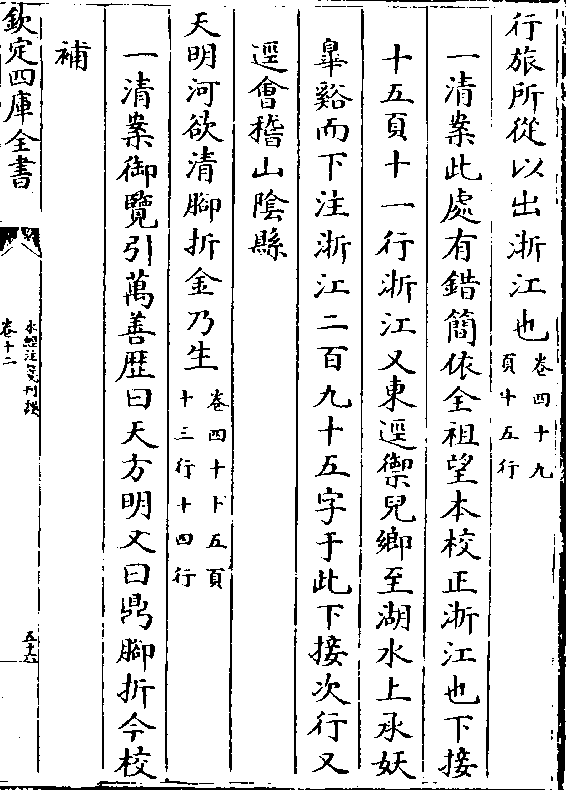 行旅所從以出浙江也卷四十九
頁十五行
一清案此處有錯簡依全祖望本校正浙江也下接
十五頁十一行浙江又東逕禦兒鄉至湖水上承妖
臯谿而下注浙江二百九十五字于此下接次行又
逕會稽山陰縣
天明河欲清腳折金乃生卷四十卜五頁
十三行十四行
一清案御覽引萬善歴曰天方明又曰鼎腳折今校
補
欽定四庫全書
水經注箋刊誤
卷十二
五十六